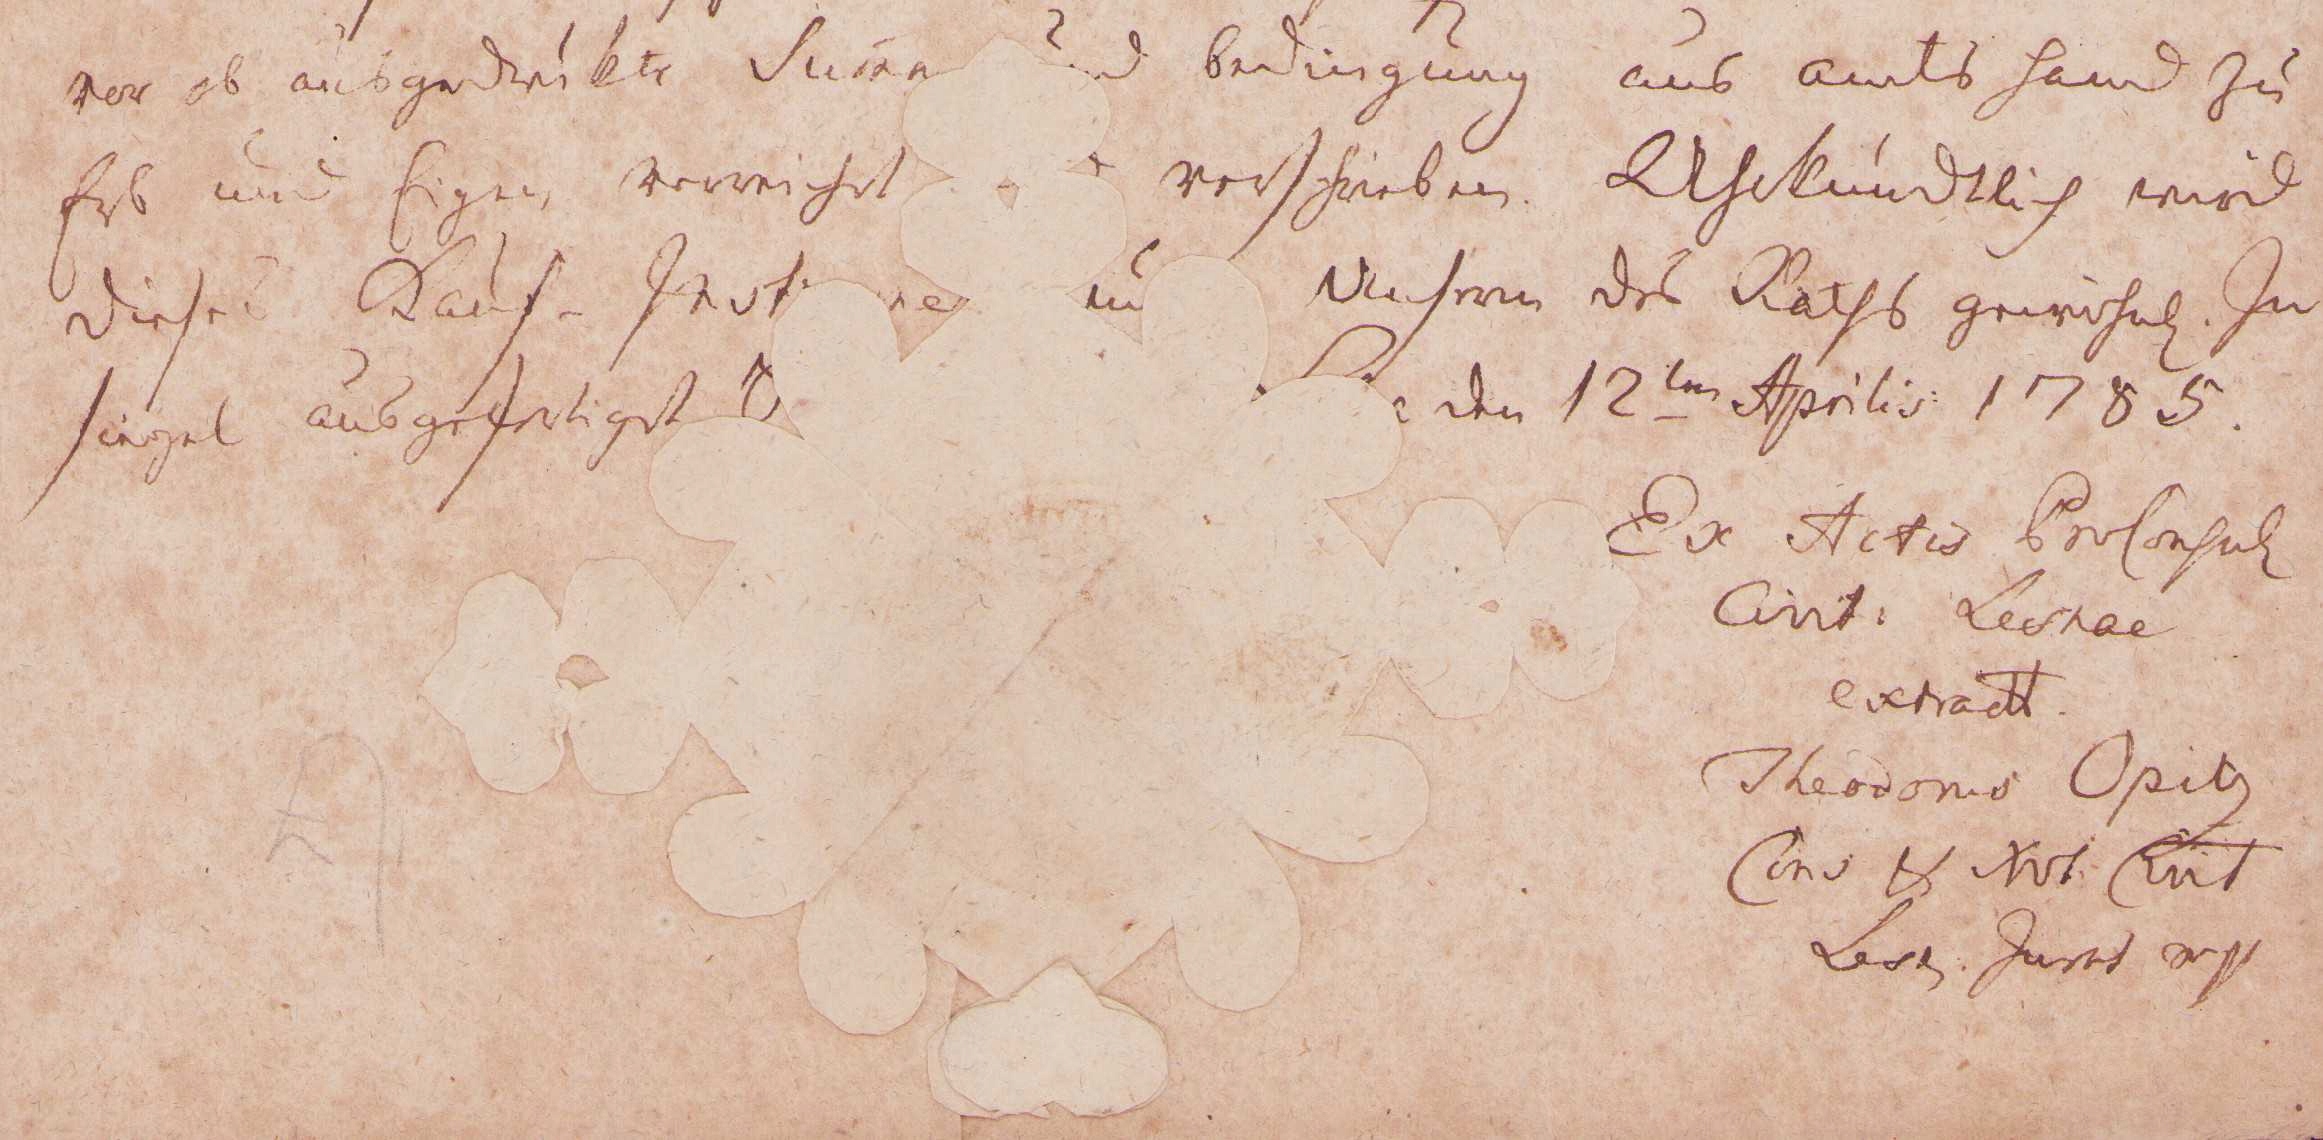 vor ob ausgedrükte Sum̅e und bedingung aus amts hand zu
Erb und Eigen verreicht verschrieben. Uhrkundtlich wird
dieses Kauf-Inst unserm des Raths gewöhnl. In
siegel ausgefertigt den 12ten Aprilis: 1785.
Ex Actis ProConsul
Civit: Lesnae
extradt.
Theodorus Opitz
Cons & Not. Civit
Lesn. Jurat mpp